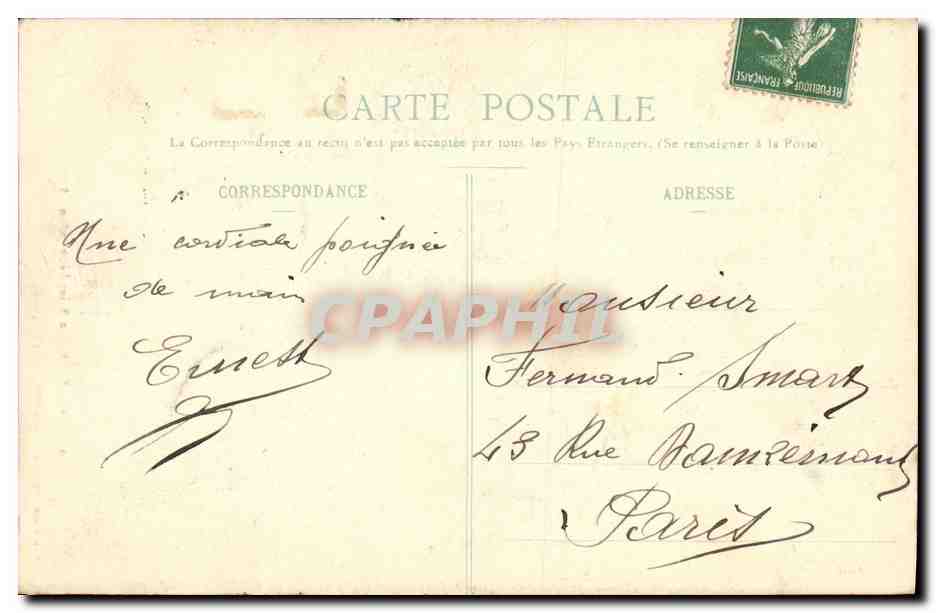 RÉPUBLIQUE FRANÇAISE
CARTE POSTALE
La Correspondance au recto n'est pas acceptée par tous les Pays Etrangers. (Se renseigner à la Poste
CORRESPONDANCE
Une cordiale poignée
de main
Ernest
ADRESSE
Monsieur
Fernand Smart
43 Rue Damrémont
Paris
CPAPHIL